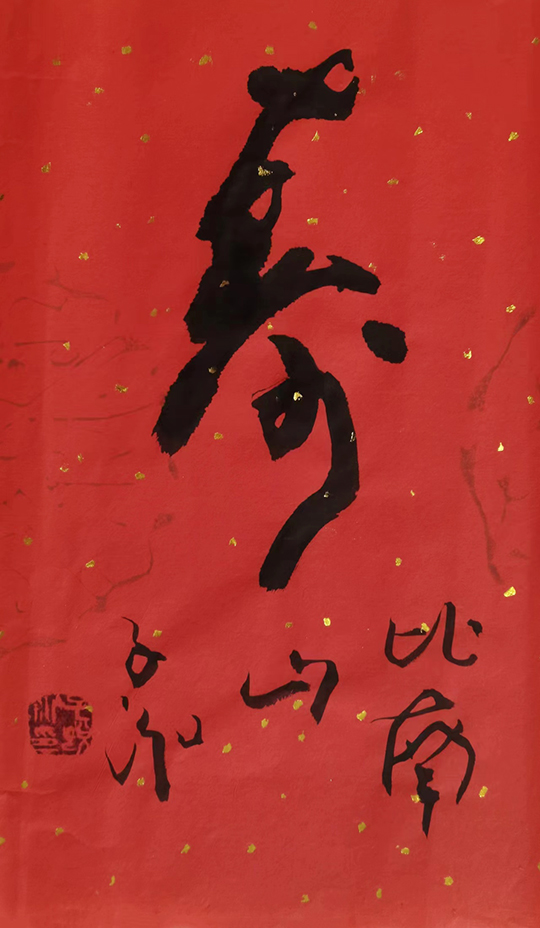 寿
比南
山
子